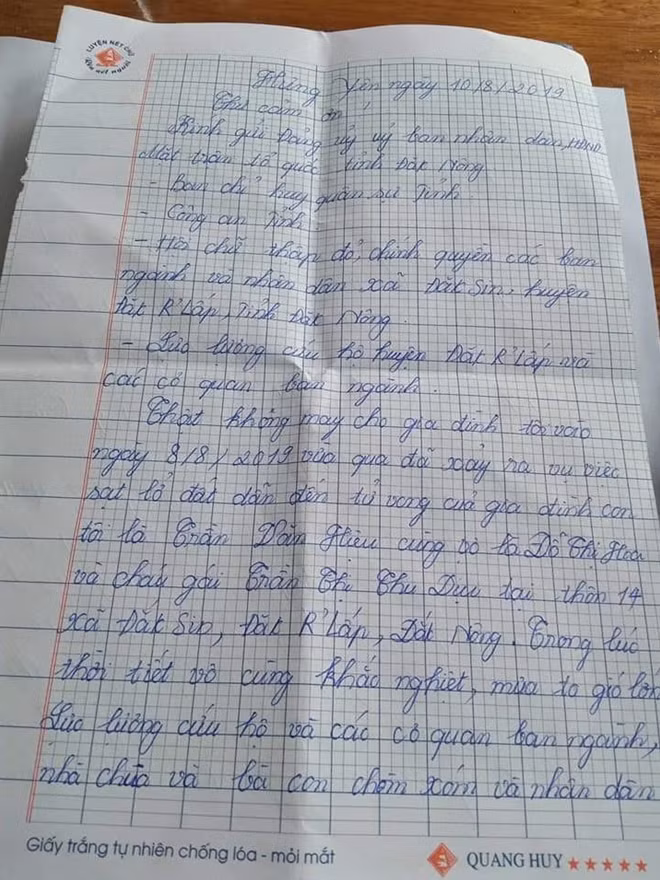 LUYỆN NÉT CHỮ
RÈN NẾT NGƯỜI
Hưng Yên ngày 10/8/2019
Thư cảm ơn
Kính gửi Đảng uỷ uỷ ban nhân dân, HĐND
Mặt trận tổ quốc tỉnh Đắk Nông
- Ban chỉ huy quân sự Tỉnh.
- Công an Tỉnh
- Hội chữ thập đỏ, chính quyền các ban
ngành và nhân dân xã Đắk Sin, huyện
Đắk R'Lấp, Tỉnh Đắk Nông.
- Lực lượng cứu hộ huyện Đắk R'Lấp và
các cơ quan ban ngành.
Thật không may cho gia đình tôi vào
ngày 8/8/2019 vừa qua đã xảy ra vụ việc
sạt lở đất dẫn đến tử vong của gia đình con
tôi là Trần Văn Hiếu cùng vợ là Đỗ Thị Hoa
và cháu gái Trần Thị Thu tại thôn 14
xã Đắk Sin, Đắk R'Lấp, Đắk Nông. Trong lúc
thời tiết vô cùng khắc nghiệt, mưa to gió lớn
Lực lượng cứu hộ và các cơ quan ban ngành,
nhà chùa và bà con chòm xóm và nhân dân
Giấy trắng tự nhiên chống lóa - mỏi mắt
QUANG HUY